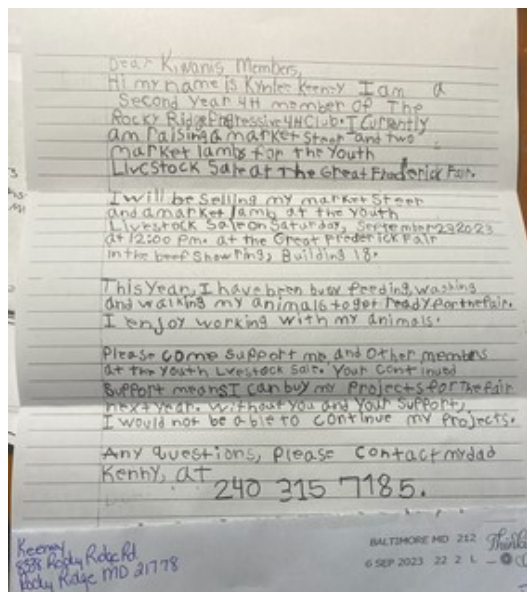 Dear Kiwanis Members,
Hi my name is Kynlee Keeney I am a
Second Year 4H member of The
Rocky Ridge Progressive 4H Club. I Currently
am raising a market Steer and two
market lambs for the Youth
Livestock Sale at The Great Frederick Fair.
I will be selling my market Steer
and a market lamb at the Youth
Livestock Sale on Saturday, September 23 2023
at 12:00 pm. at the Great Frederick Fair
in the beef Show ring, Building 18.
This Year, I have been busy feeding, washing
and walking my animals to get ready for the fair.
I enjoy working with my animals.
Please come support me and other members
at the Youth Livestock Sale. Your continued
Support means I can buy my Projects for the fair
next year. Without you and Your Support,
I would not be able to continue my Projects.
Any questions, Please contact my dad
Kenny, at
240 315 7185.
Keeney
Rocky Ridge Rd
Rocky Ridge MD 21778
BALTIMORE MD 212
6 SEP 2023 22 2 L